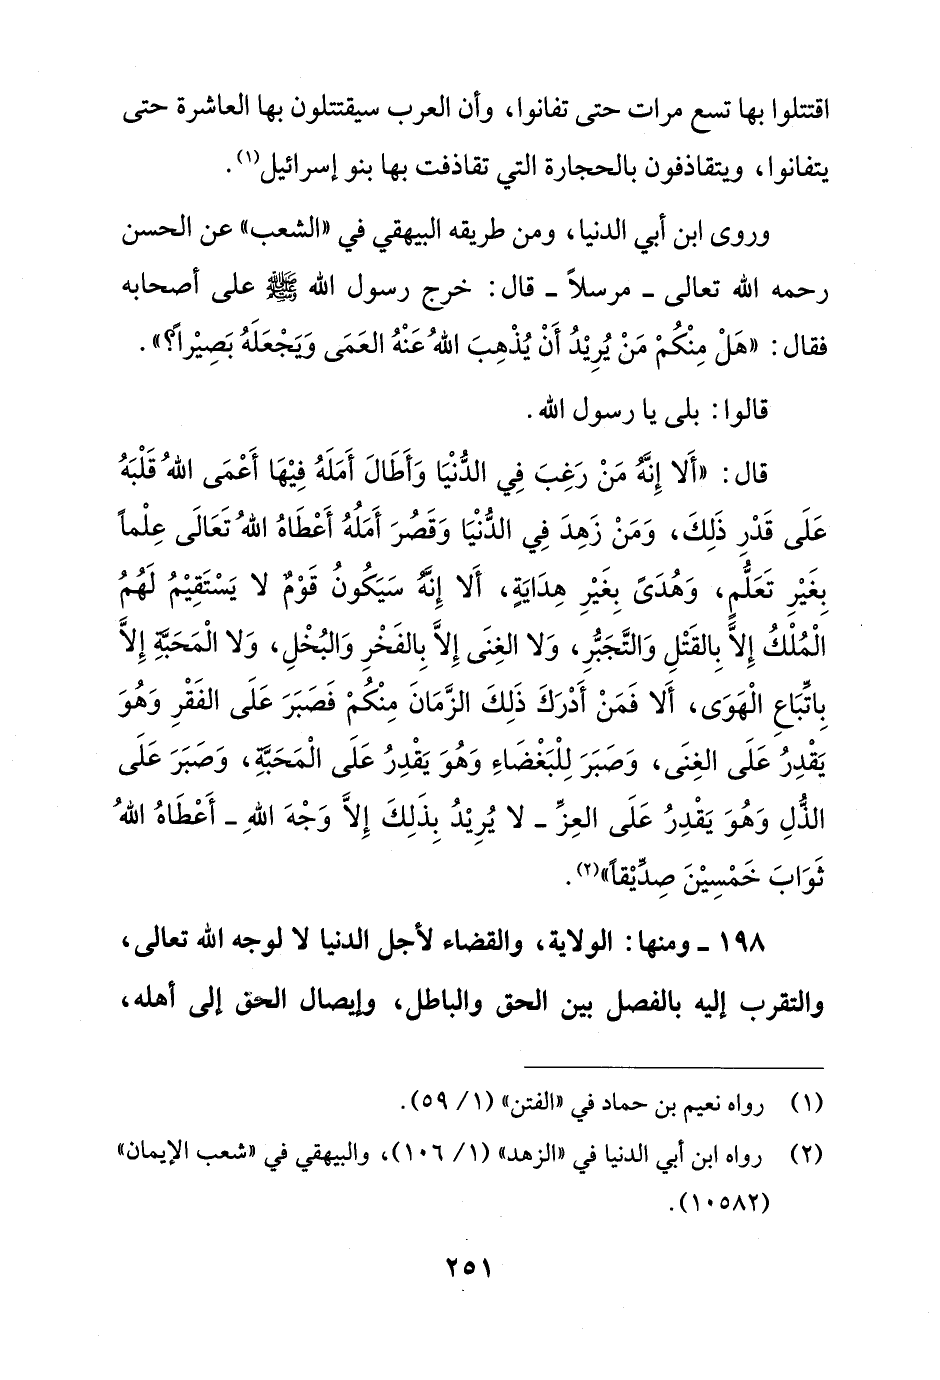 اقتتلوا بها تسع مرات حتى تفانوا، وأن العرب سيقتتلون بها العاشرة حتى
يتفانوا، ويتقاذفون بالحجارة التي تقاذفت بها بنو إسرائيل(١).
وروى ابن أبي الدنيا، ومن طريقه البيهقي في «الشعب» عن الحسن
رحمه الله تعالى ـ مرسلاً ـ قال: خرج رسول الله ﷺ على أصحابه
فقال: «هَلْ مِنْكُمْ مَنْ يُرِيْدُ أَنْ يُذْهِبَ اللهُ عَنْهُ العَمَى وَيَجْعَلَهُ بَصِيْراً؟».
قالوا: بلى يا رسول الله.
قال: «أَلا إِنَّهُ مَنْ رَغِبَ فِي الدُّنْيَا وَأَطَالَ أَمَلَهُ فِيْهَا أَعْمَى اللهُ قَلْبَهُ
عَلَى قَدْرِ ذَلِكَ، وَمَنْ زَهِدَ فِي الدُّنْيَا وَقَصُرَ أَمَلُهُ أَعْطَاهُ اللهُ تَعَالَى عِلْماً
بِغَيْرِ تَعَلُّمٍ، وَهُدَىً بِغَيْرِ هِدَايَةٍ، أَلا إِنَّهُ سَيَكُونُ قَوْمٌ لا يَسْتَقِيْمُ لَهُمُ
الْمُلْكُ إِلاَّ بِالقَتْلِ وَالتَّجَبُّرِ، وَلا الغِنَى إِلاَّ بِالفَخْرِ وَالبُخْلِ، وَلا الْمَحَبَّةِ إِلاَّ
بِاتِّبَاعِ الْهَوَى، أَلا فَمَنْ أَدْرَكَ ذَلِكَ الزَّمَانَ مِنْكُمْ فَصَبَرَ عَلَى الفَقْرِ وَهُوَ
يَقْدِرُ عَلَى الغِنَى، وَصَبَرَ لِلْبَغْضَاءِ وَهُوَ يَقْدِرُ عَلَى الْمَحَبَّةِ، وَصَبَرَ عَلَى
الذُّلِ وَهُوَ يَقْدِرُ عَلَى العِزِّ ـ لا يُرِيْدُ بِذَلِكَ إِلاَّ وَجْهَ اللهِ ـ أَعْطَاهُ اللهُ
ثَوَابَ خَمْسِيْنَ صِدِّيْقاً»(٢).
١٩٨ ـ ومنها: الولاية، والقضاء لأجل الدنيا لا لوجه الله تعالى،
والتقرب إليه بالفصل بين الحق والباطل، وإيصال الحق إلى أهله،
(١) رواه نعيم بن حماد في «الفتن» (١/ ٥٩).
(٢) رواه ابن أبي الدنيا في «الزهد» (١/ ١٠٦)، والبيهقي في «شعب الإيمان»
(١٠٥٨٢).
٢٥١